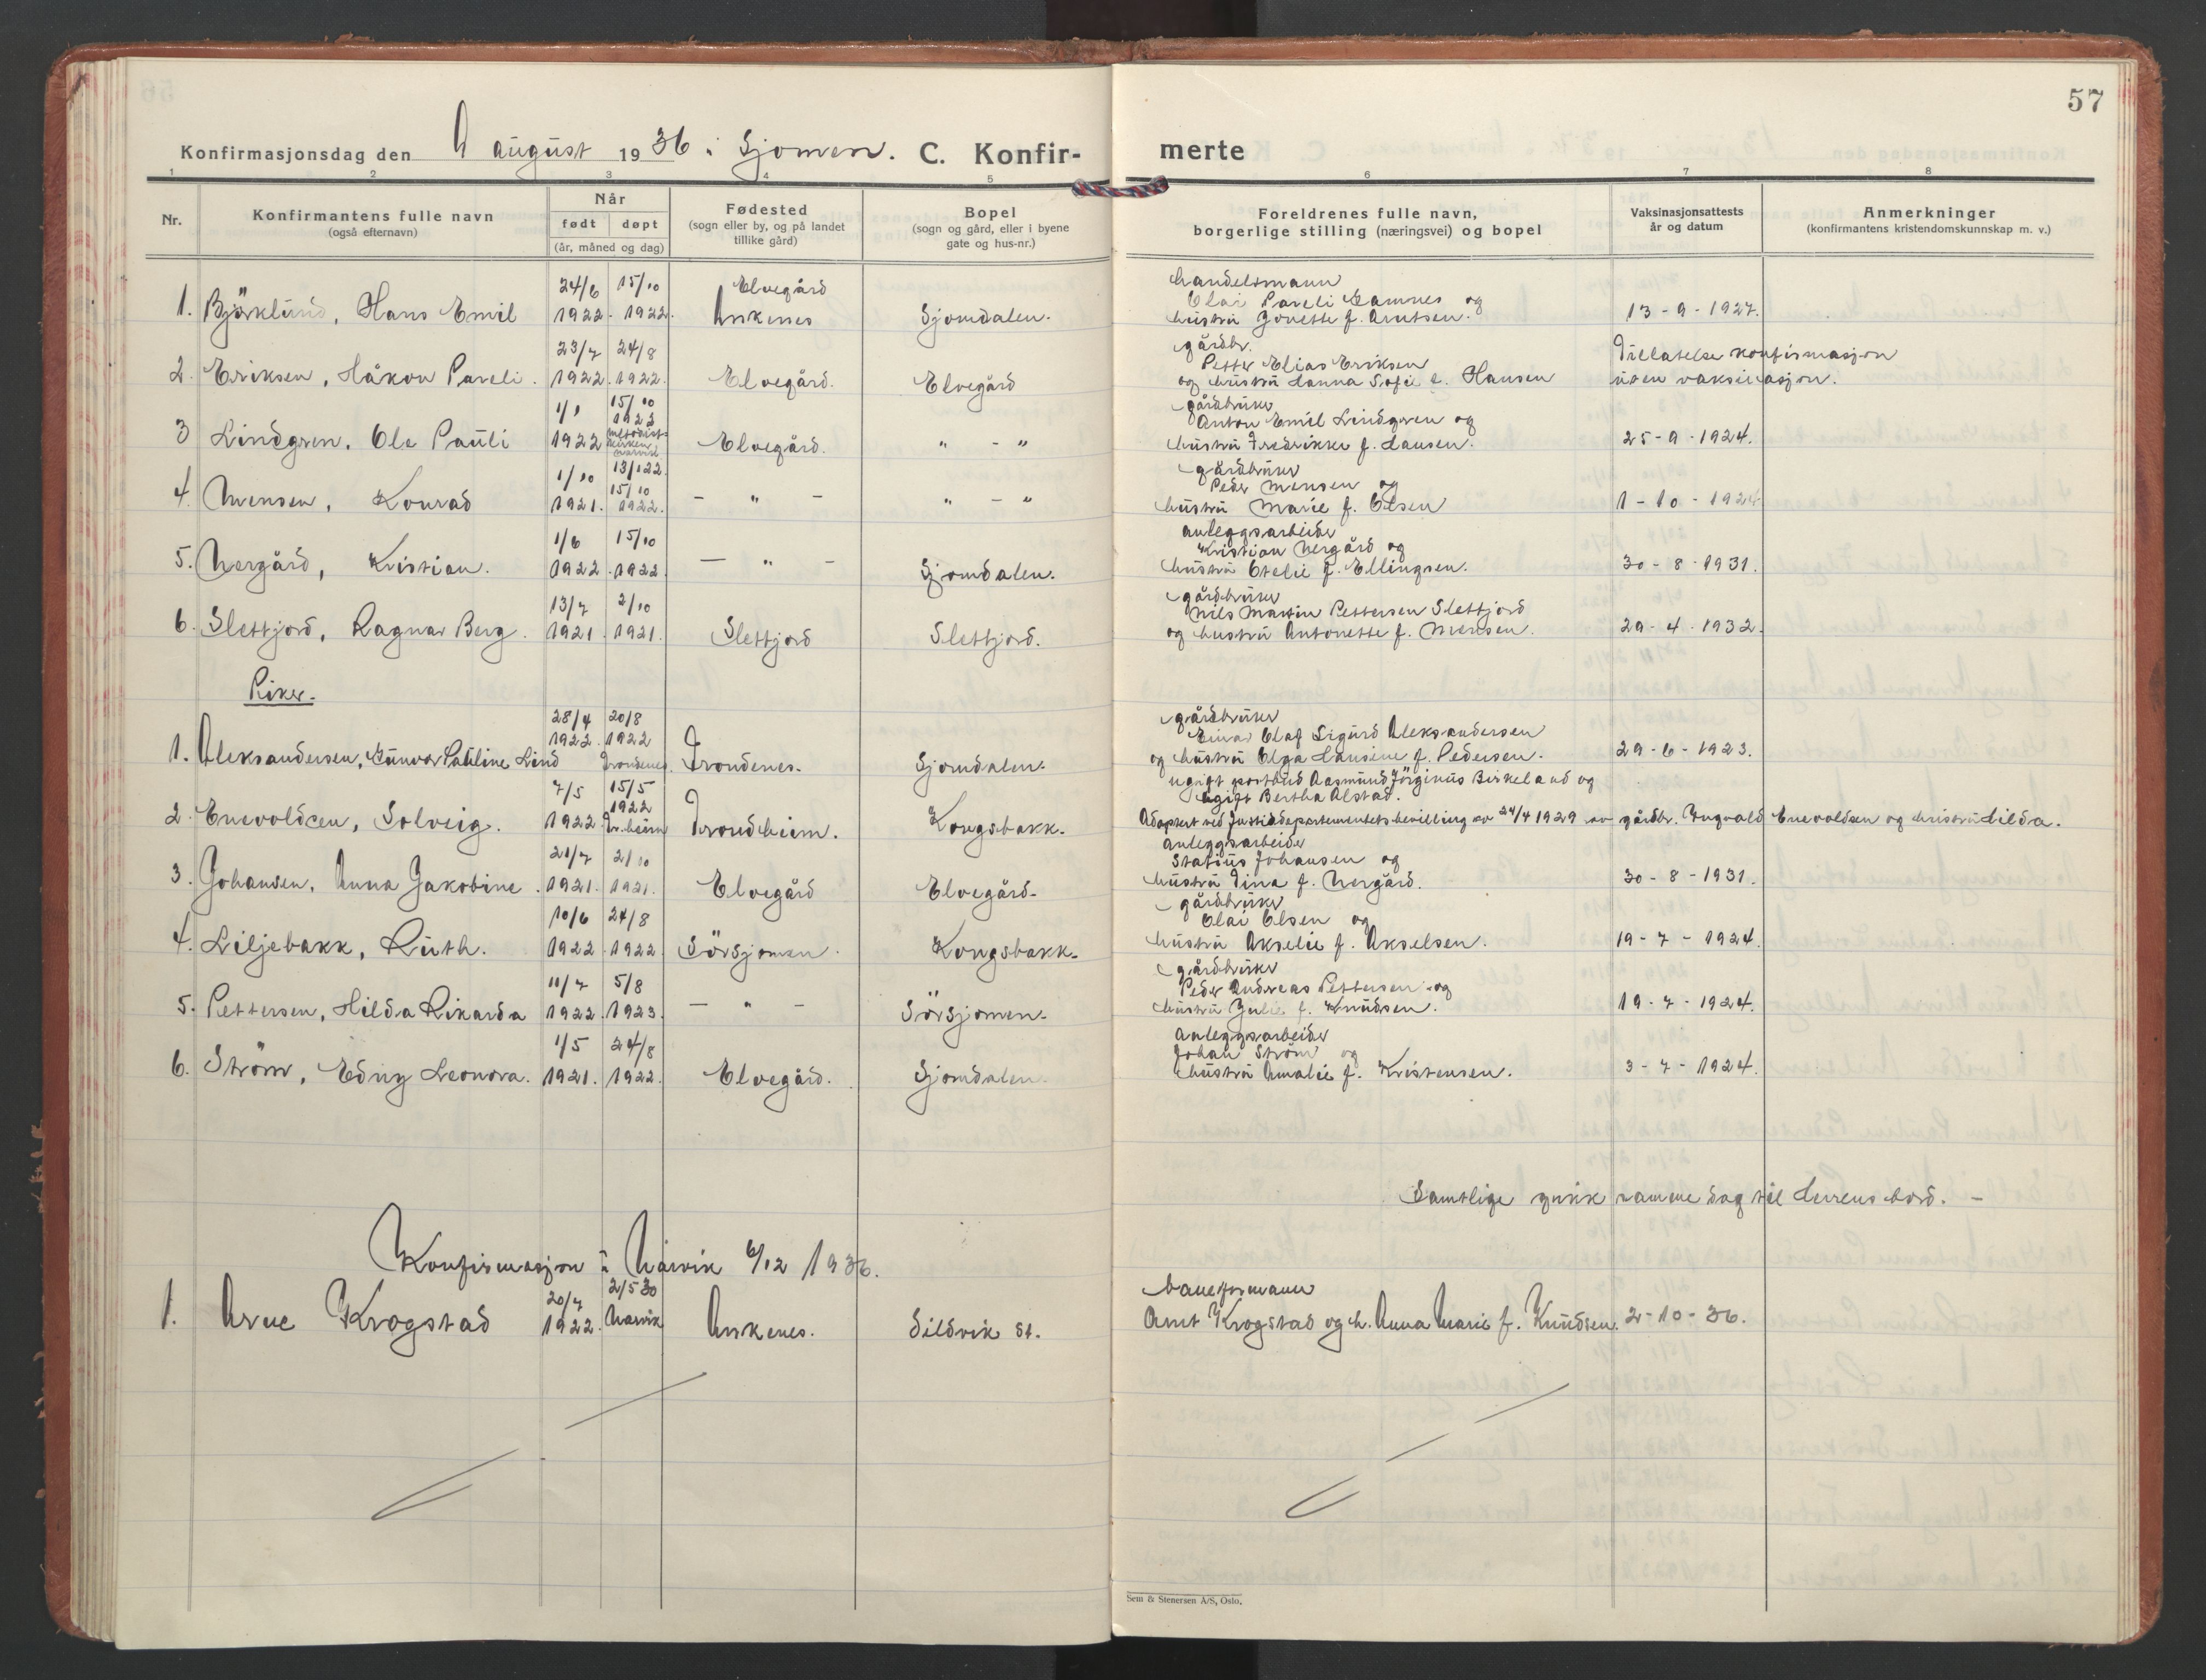 57
Konfirmasjonsdag den 9 august 1936 i Sjomen. C. Konfir- merte
1 2 3 4 5 6 7 8
Nr. Konfirmantens fulle navn (også efternavn) Når født døpt (år, måned og dag) Fødested (sogn eller by, og på landet tillike gård) Bopel (sogn og gård, eller i byene gate og hus-nr.) Foreldrenes fulle navn, borgerlige stilling (næringsvei) og bopel Vaksinasjonsattests år og datum Anmerkninger (konfirmantens kristendomskunnskap m. v.)
24/6 15/10 Elvegård handelsmann
Olai Pareli Hamnes og
1. Björklund, Hans Emil 1922. 1922. Ankenes Sjomdalen. hustru Jonette f. Arntsen. 13-9-1927.
23/7 24/8 gårdbr.
Petter Elias Eriksen Tillatelse konfirmasjon
2. Eriksen, Håkon Pareli. 1922. 1922. Elvegård. Elvegård og hustru Hanna Sofie f. Hansen uten vaksinasjon.
1/1 15/10 1923 gårdbruker
Anton Emil Lindgren og
3 Lindgren, Ole Pauli 1922 metodistkirken Narvik Elvegård. " - " hustru Fredrikke f. Hansen. 25-9-1924.
1/10 13/1 22. gårdbruker
15/10 Peder Mensen og
4. Mensen, Konrad 1921. 1922. - " - " - " hustru Marie f. Olsen 1-10-1924
1/6 15/10 anleggsarbeider
Kristian Nergård og
5. Nergård, Kristian. 1922. 1922. - " - Sjomdalen. hustru Otelie f. Ellingsen. 30-8-1931.
13/7 2/10 gårdbruker
Nils Martin Pettersen Slettjord
6. Slettjord, Ragnar Berg. 1921. 1921. Slettjord Slettjord. og hustru Antonette f. Mensen. 29-4-1932.
Piker.
28/4 20/8 gårdbruker
1922. 1922 Einar Olaf Sigurd Aleksandersen
1. Aleksandersen, Gunvor Pauline Lind Trondenes. Trondenes. Sjomdalen. og hustru Olga Hansine f. Pedersen. 29-6-1923.
7/5 15/5 ugift postbud Aasmund Jörginus Birkeland og
1922 ugift Bertha Alstad.
2. Enevoldsen, Solveig. 1922 Tr.heim Trondheim. Kongsbakk. Adoptert ved Justisdepartementets bevilling av 24/4 1929 av gårdbr. Ingvald Enevoldsen og hustru Hilda.
21/7 2/10 anleggsarbeider
Statius Johansen og
3. Johansen, Anna Jakobine. 1921. 1921. Elvegård Elvegård. hustru Tina f. Nergård. 30-8-1931.
10/6 24/8 gårdbruker
Olai Olsen og
4. Liljebakk, Ruth. 1922. 1922. Sörsjomen. Kongsbakk. hustru Akselie f. Akselsen. 19-7-1924.
11/7 5/8 gårdbruker
Peder Andreas Pettersen og
5. Pettersen, Hilda Rikarda 1922. 1923. - " - Sörsjomen. hustru Julie f. Knudsen. 19-7-1924.
1/5 24/8 Anleggsarbeider
Johan Ström og
6. Ström, Edny Leonora. 1921. 1922. Elvegård. Sjomdalen. hustru Amalie f. Kristensen. 3-7-1924.
Samtlige gikk samme dag til Herrens bord. -
Konfirmasjon i Narvik 6/12 1936.
20/7 2/5 30 baneformann
1. Arne Krogstad 1922. Narvik Ankenes. Sildvik St. Arnt Krogstad og h. Anna Marie f. Knudsen. 2-10-36.
Sem & Stenersen A/S, Oslo.